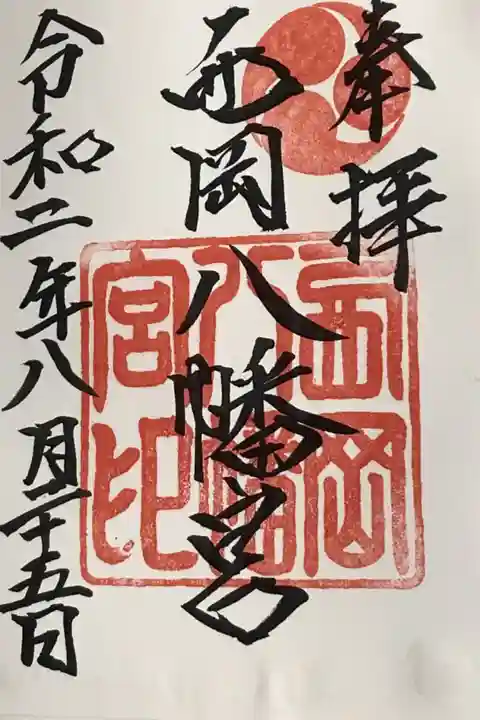 奉拝
西岡八幡宮
令和二年八月二十五日
西岡
八幡
宮印